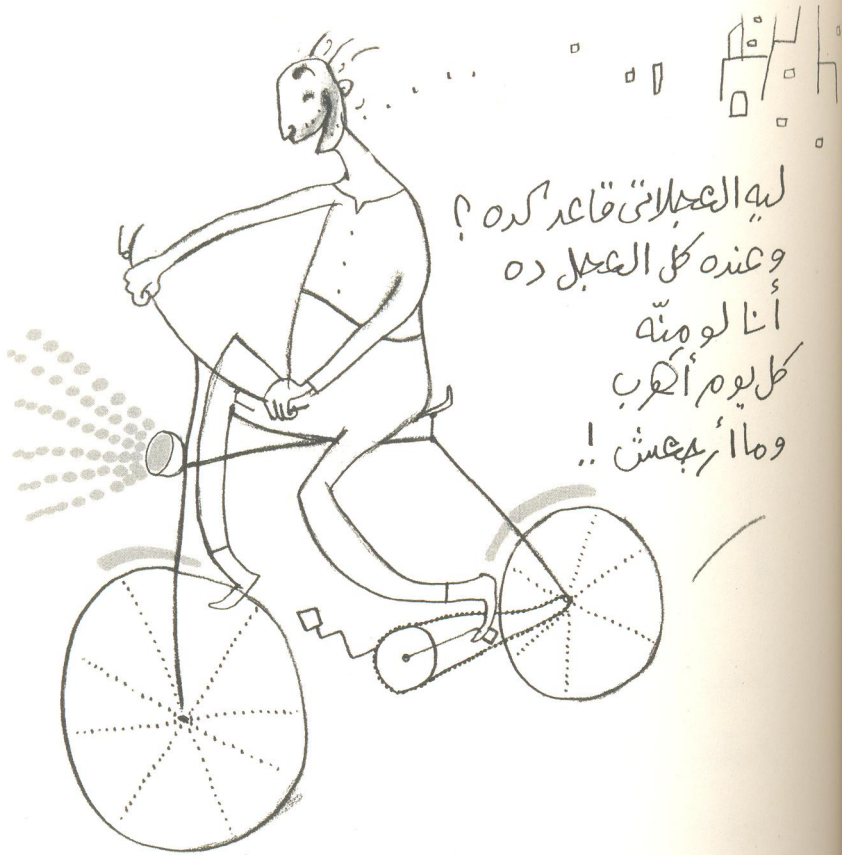 ليه العجلاتى قاعد كده ؟
وعنده كل العجل ده
أنا لو منّه
كل يوم أهرب
وما أرجعش !!